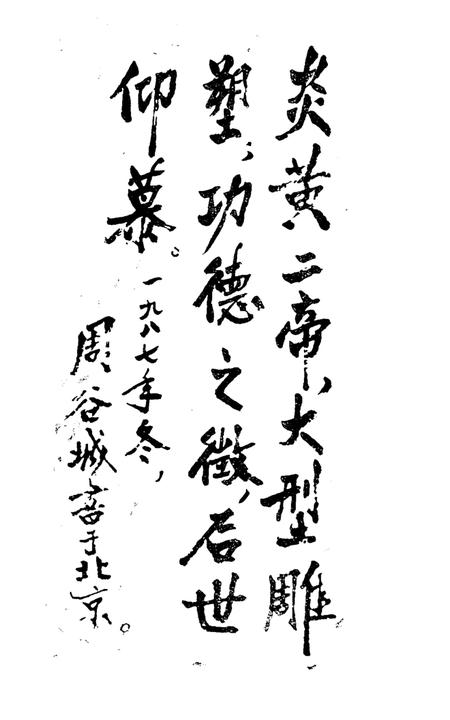 炎黄二帝,大型雕
塑,功德之徵,后世
仰慕。一九八七年冬,
周谷城書于北京。